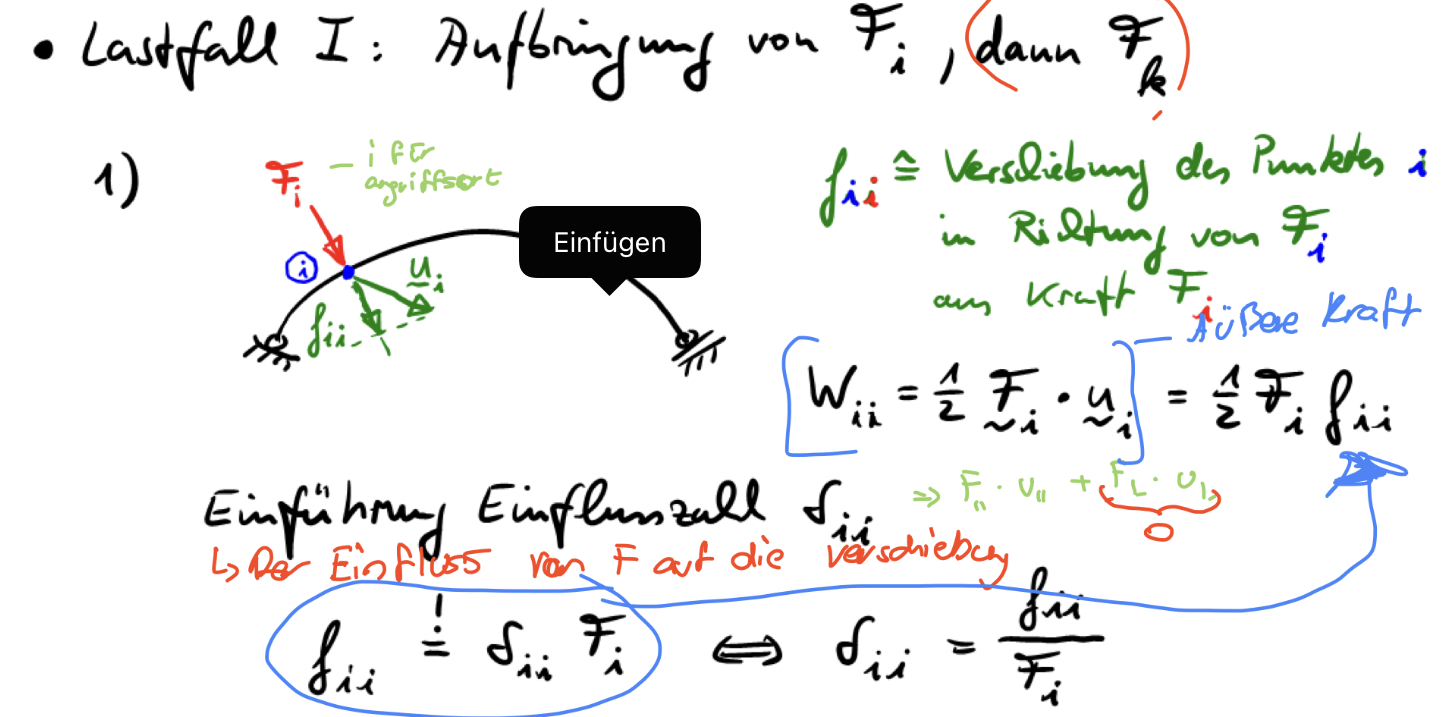 • Lastfall I: Aufbringung von F_i, dann F_k
1)
F_i – i für
angriffsort
i
u_i
f_ii
Einfügen
f_ii ≙ Verschiebung des Punktes i
in Richtung von F_i
aus Kraft F_i
Äußere Kraft
W_ii = 1/2 F_i · u_i = 1/2 F_i f_ii
⇒ F_11 · u_11 + F_⊥ · u_⊥
0
Einführung Einflusszahl δ_ii
↳ Der Einfluss von F auf die verschiebung
f_ii =! δ_ii F_i ⟺ δ_ii = f_ii / F_i